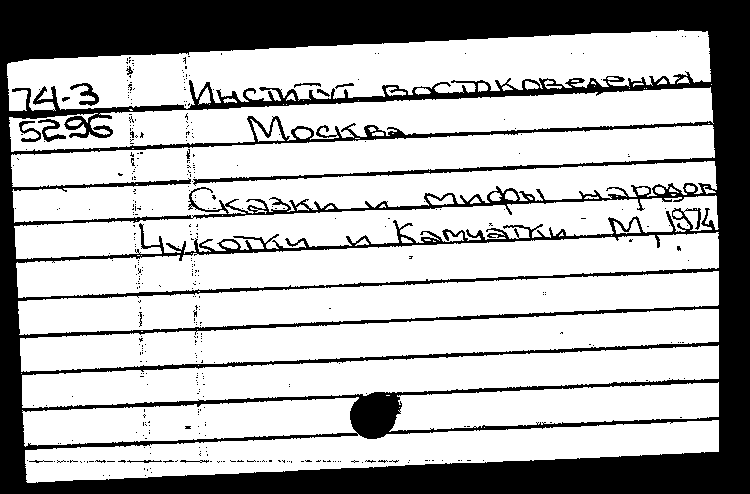 74-3 Институт востоковедения.
5296 Москва.
Сказки и мифы народов
Чукотки и Камчатки. М., 1974.